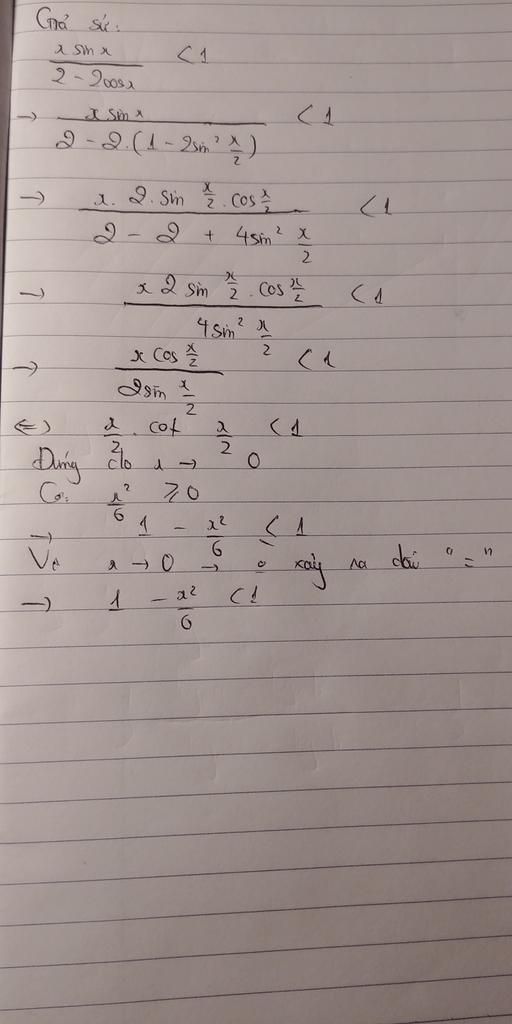 Giả sử:
x sin x / 2 - 2cosx < 1
→ x sin x / 2 - 2.(1 - 2sin² x/2) < 1
→ x. 2. sin x/2 . cos x/2 / 2 - 2 + 4sin² x/2 < 1
→ x 2 sin x/2 . cos x/2 / 4 sin² x/2 < 1
→ x cos x/2 / 2 sin x/2 < 1
⇔ x/2 . cot x/2 < 1
Đúng do x → 0
Có: x²/6 ≥ 0
→ 1 - x²/6 ≤ 1
Vì x → 0 → xảy ra dấu "="
→ 1 - x²/6 < 1